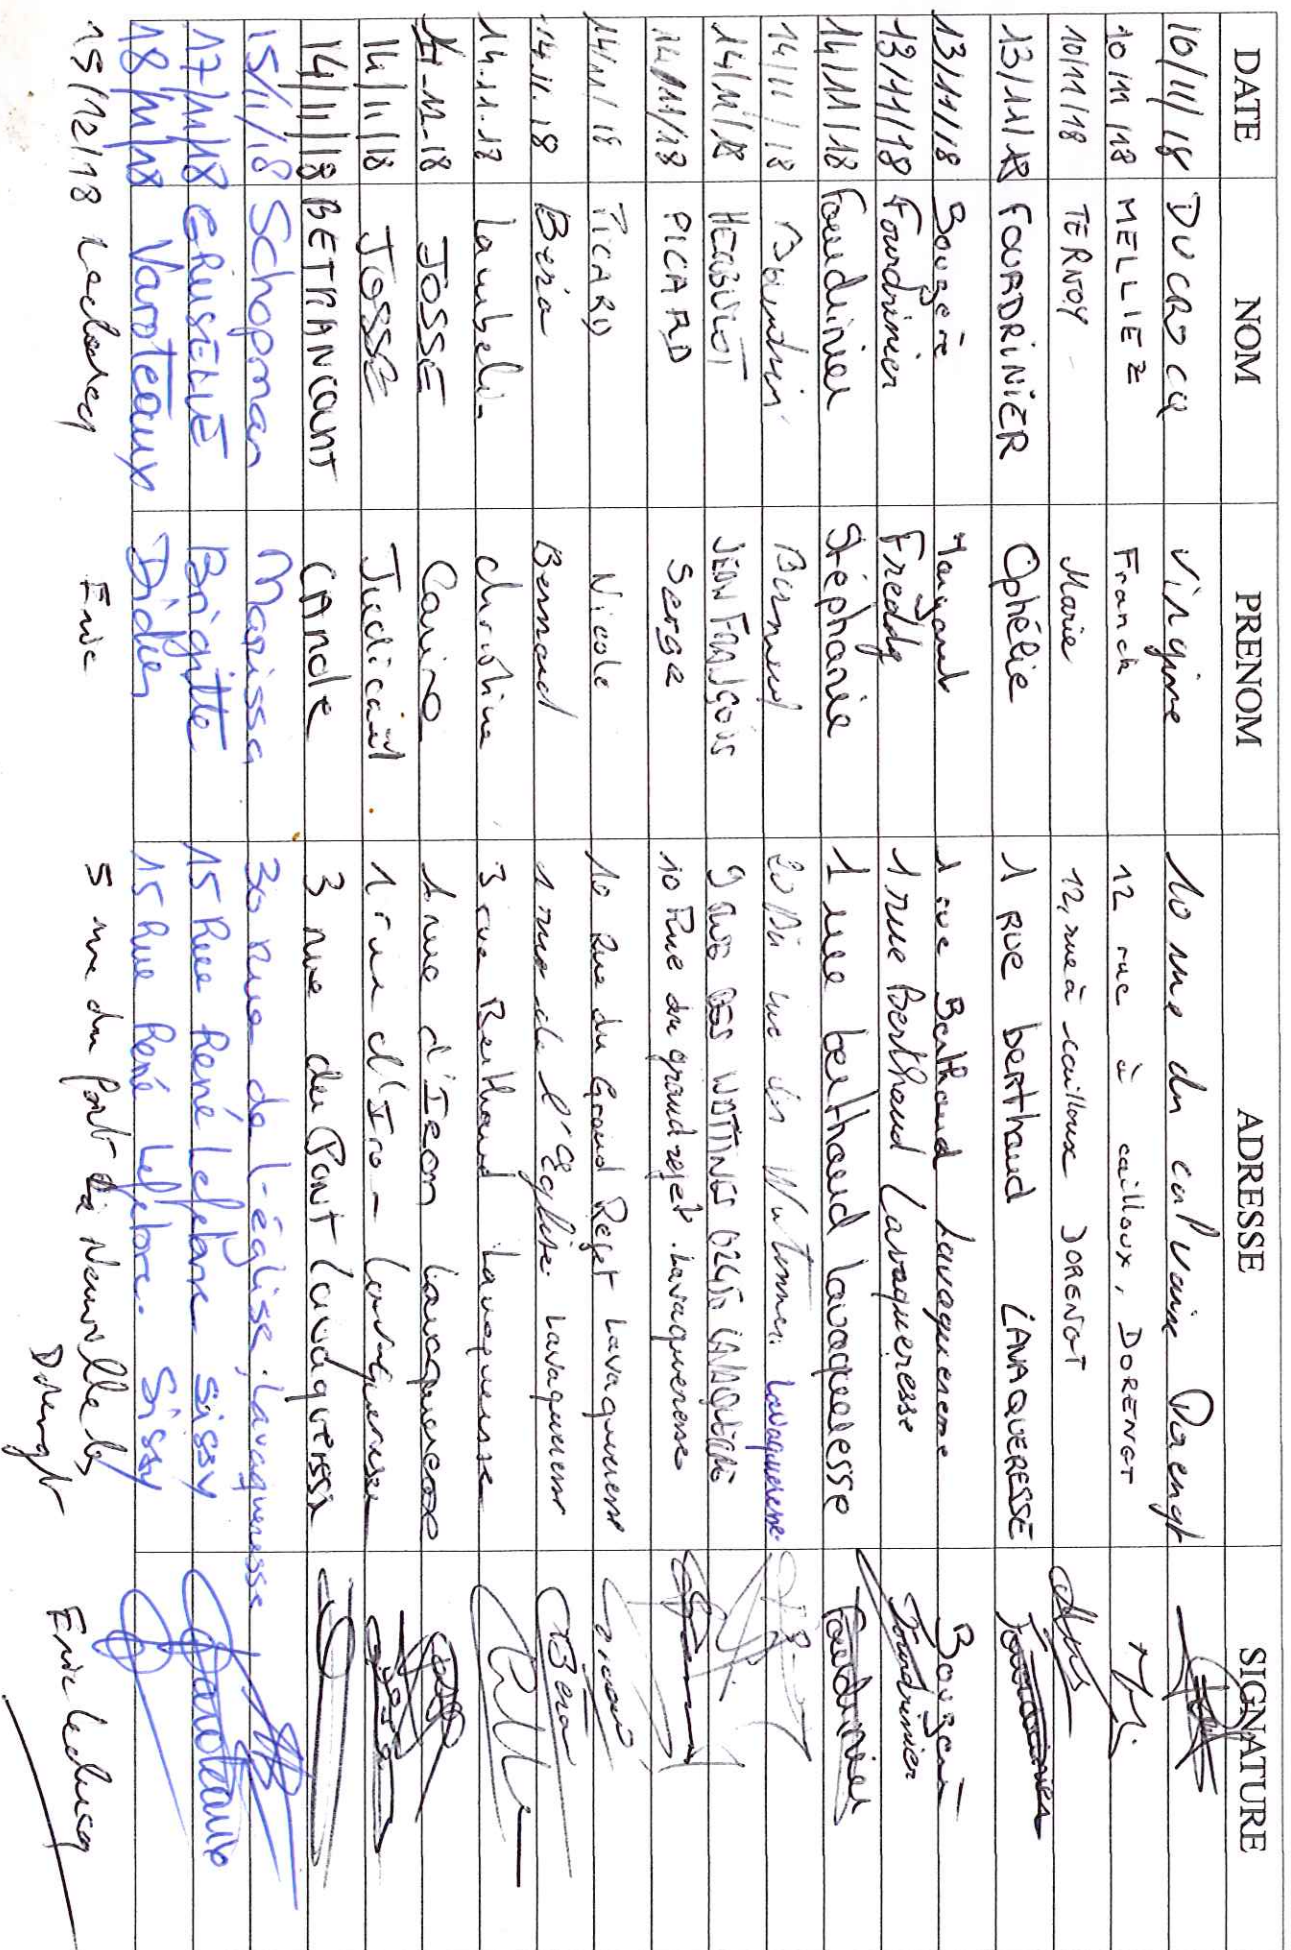 DATE NOM PRENOM ADRESSE SIGNATURE
10/11/18 DUCROCQ Virginie 10 rue du calvaire Dorengt
10/11/18 MELLIEZ Franck 12 rue à cailloux, DORENGT
10/11/18 TERNOY Marie 12, rue à cailloux DORENGT
13/11/18 FOURDRINIER Ophélie 1 RUE berthaud LAVAQUERESSE
13/11/18 1 rue Berthaud Lavaqueresse
13/11/18 Fourdrinier Freddy 1 rue Berthaud Lavaqueresse Fourdrinier
14/11/18 Stéphanie 1 rue berthaud lavaqueresse
14/11/18 Lavaqueresse
14/11/18 JEAN FRANÇOIS
14/11/18 PICARD Serge 10 Rue du grand rejet. Lavaqueresse
14/11/18 PICARD Nicole 10 Rue du Grand Rejet Lavaqueresse
14.11.18 Béra Bernard 1 rue de l'Eglise. Lavaqueresse Béra
14.11.18 Christine 3 rue Berthaud Lavaqueresse
14-11-18 JOSSE 1 rue d'Iron Lavaqueresse
14/11/18 JOSSE 1 rue d'Iron - Lavaqueresse
14/11/18 BETRANCOURT 3 rue du Pont Lavaqueresse
15/11/18 Schopman Marissa 30 rue de l'église, Lavaqueresse
17/11/18 Brigitte 15 Rue René Lefebvre Sissy
18/11/18 Varoteaux Didier 15 Rue René Lefebvre. Sissy
15/12/18 Leclercq Eric 5 rue du Pont Neuville les Dorengt Eric Leclercq